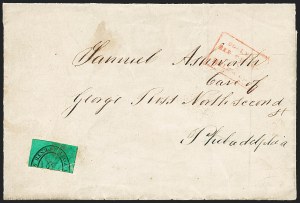 Samuel Ashworth
Care of
George Ross North Second
St
Philadelphia